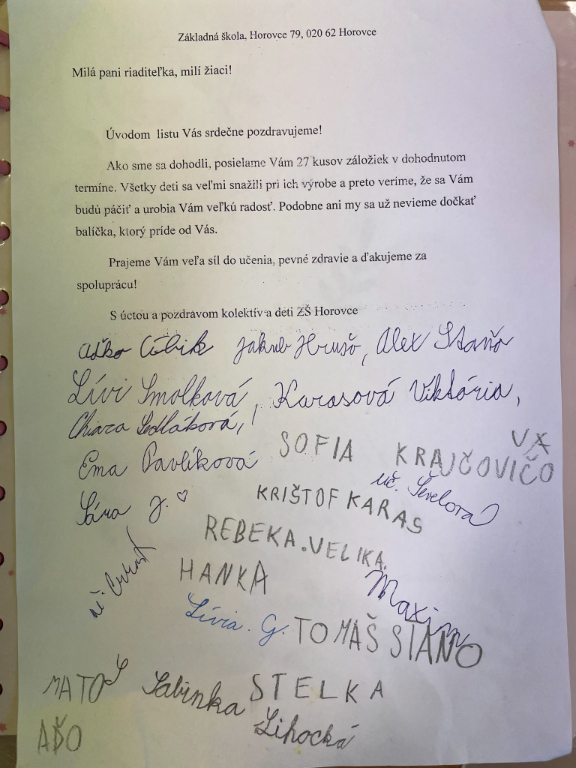 Základná škola, Horovce 79, 020 62 Horovce
Milá pani riaditeľka, milí žiaci!
Úvodom listu Vás srdečne pozdravujeme!
Ako sme sa dohodli, posielame Vám 27 kusov záložiek v dohodnutom
termíne. Všetky deti sa veľmi snažili pri ich výrobe a preto veríme, že sa Vám
budú páčiť a urobia Vám veľkú radosť. Podobne ani my sa už nevieme dočkať
balíčka, ktorý príde od Vás.
Prajeme Vám veľa síl do učenia, pevné zdravie a ďakujeme za
spoluprácu!
S úctou a pozdravom kolektív a deti ZŠ Horovce
Jakub Hrušo, Alex Staňo
Lívi Smolková, Karasová Viktória,
Chiara Sedláková,
SOFIA KRAJČOVIČO
VÁ
Ema Pavlíková
uč.
KRIŠTOF KARAS
Sára J. ♡
REBEKA.VELIKA.
HANKA
Maxim
Lívia. G. TOMÁŠ STANO
MATO Sabinka STELKA
Lihocká